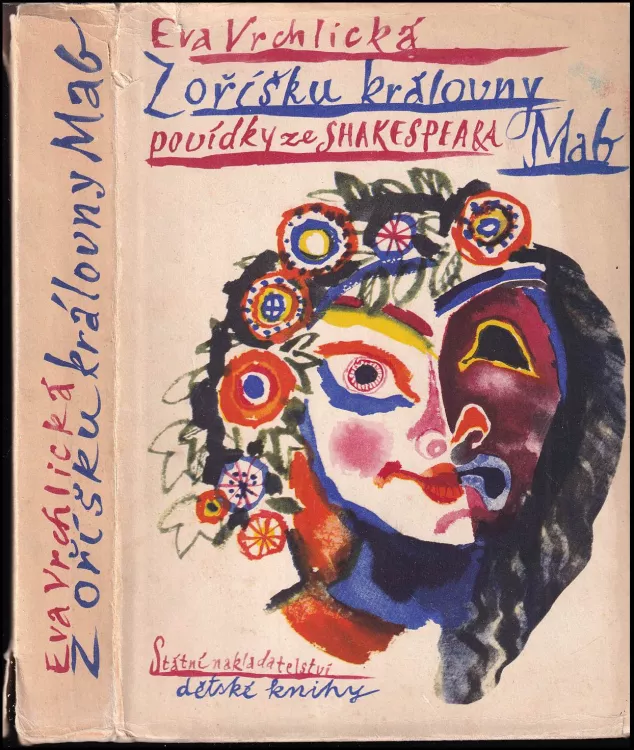 Eva Vrchlická
Z oříšku královny
Mab
povídky ze SHAKESPEARA
Státní nakladatelství
dětské knihy
Eva Vrchlická
Z oříšku královny Mab